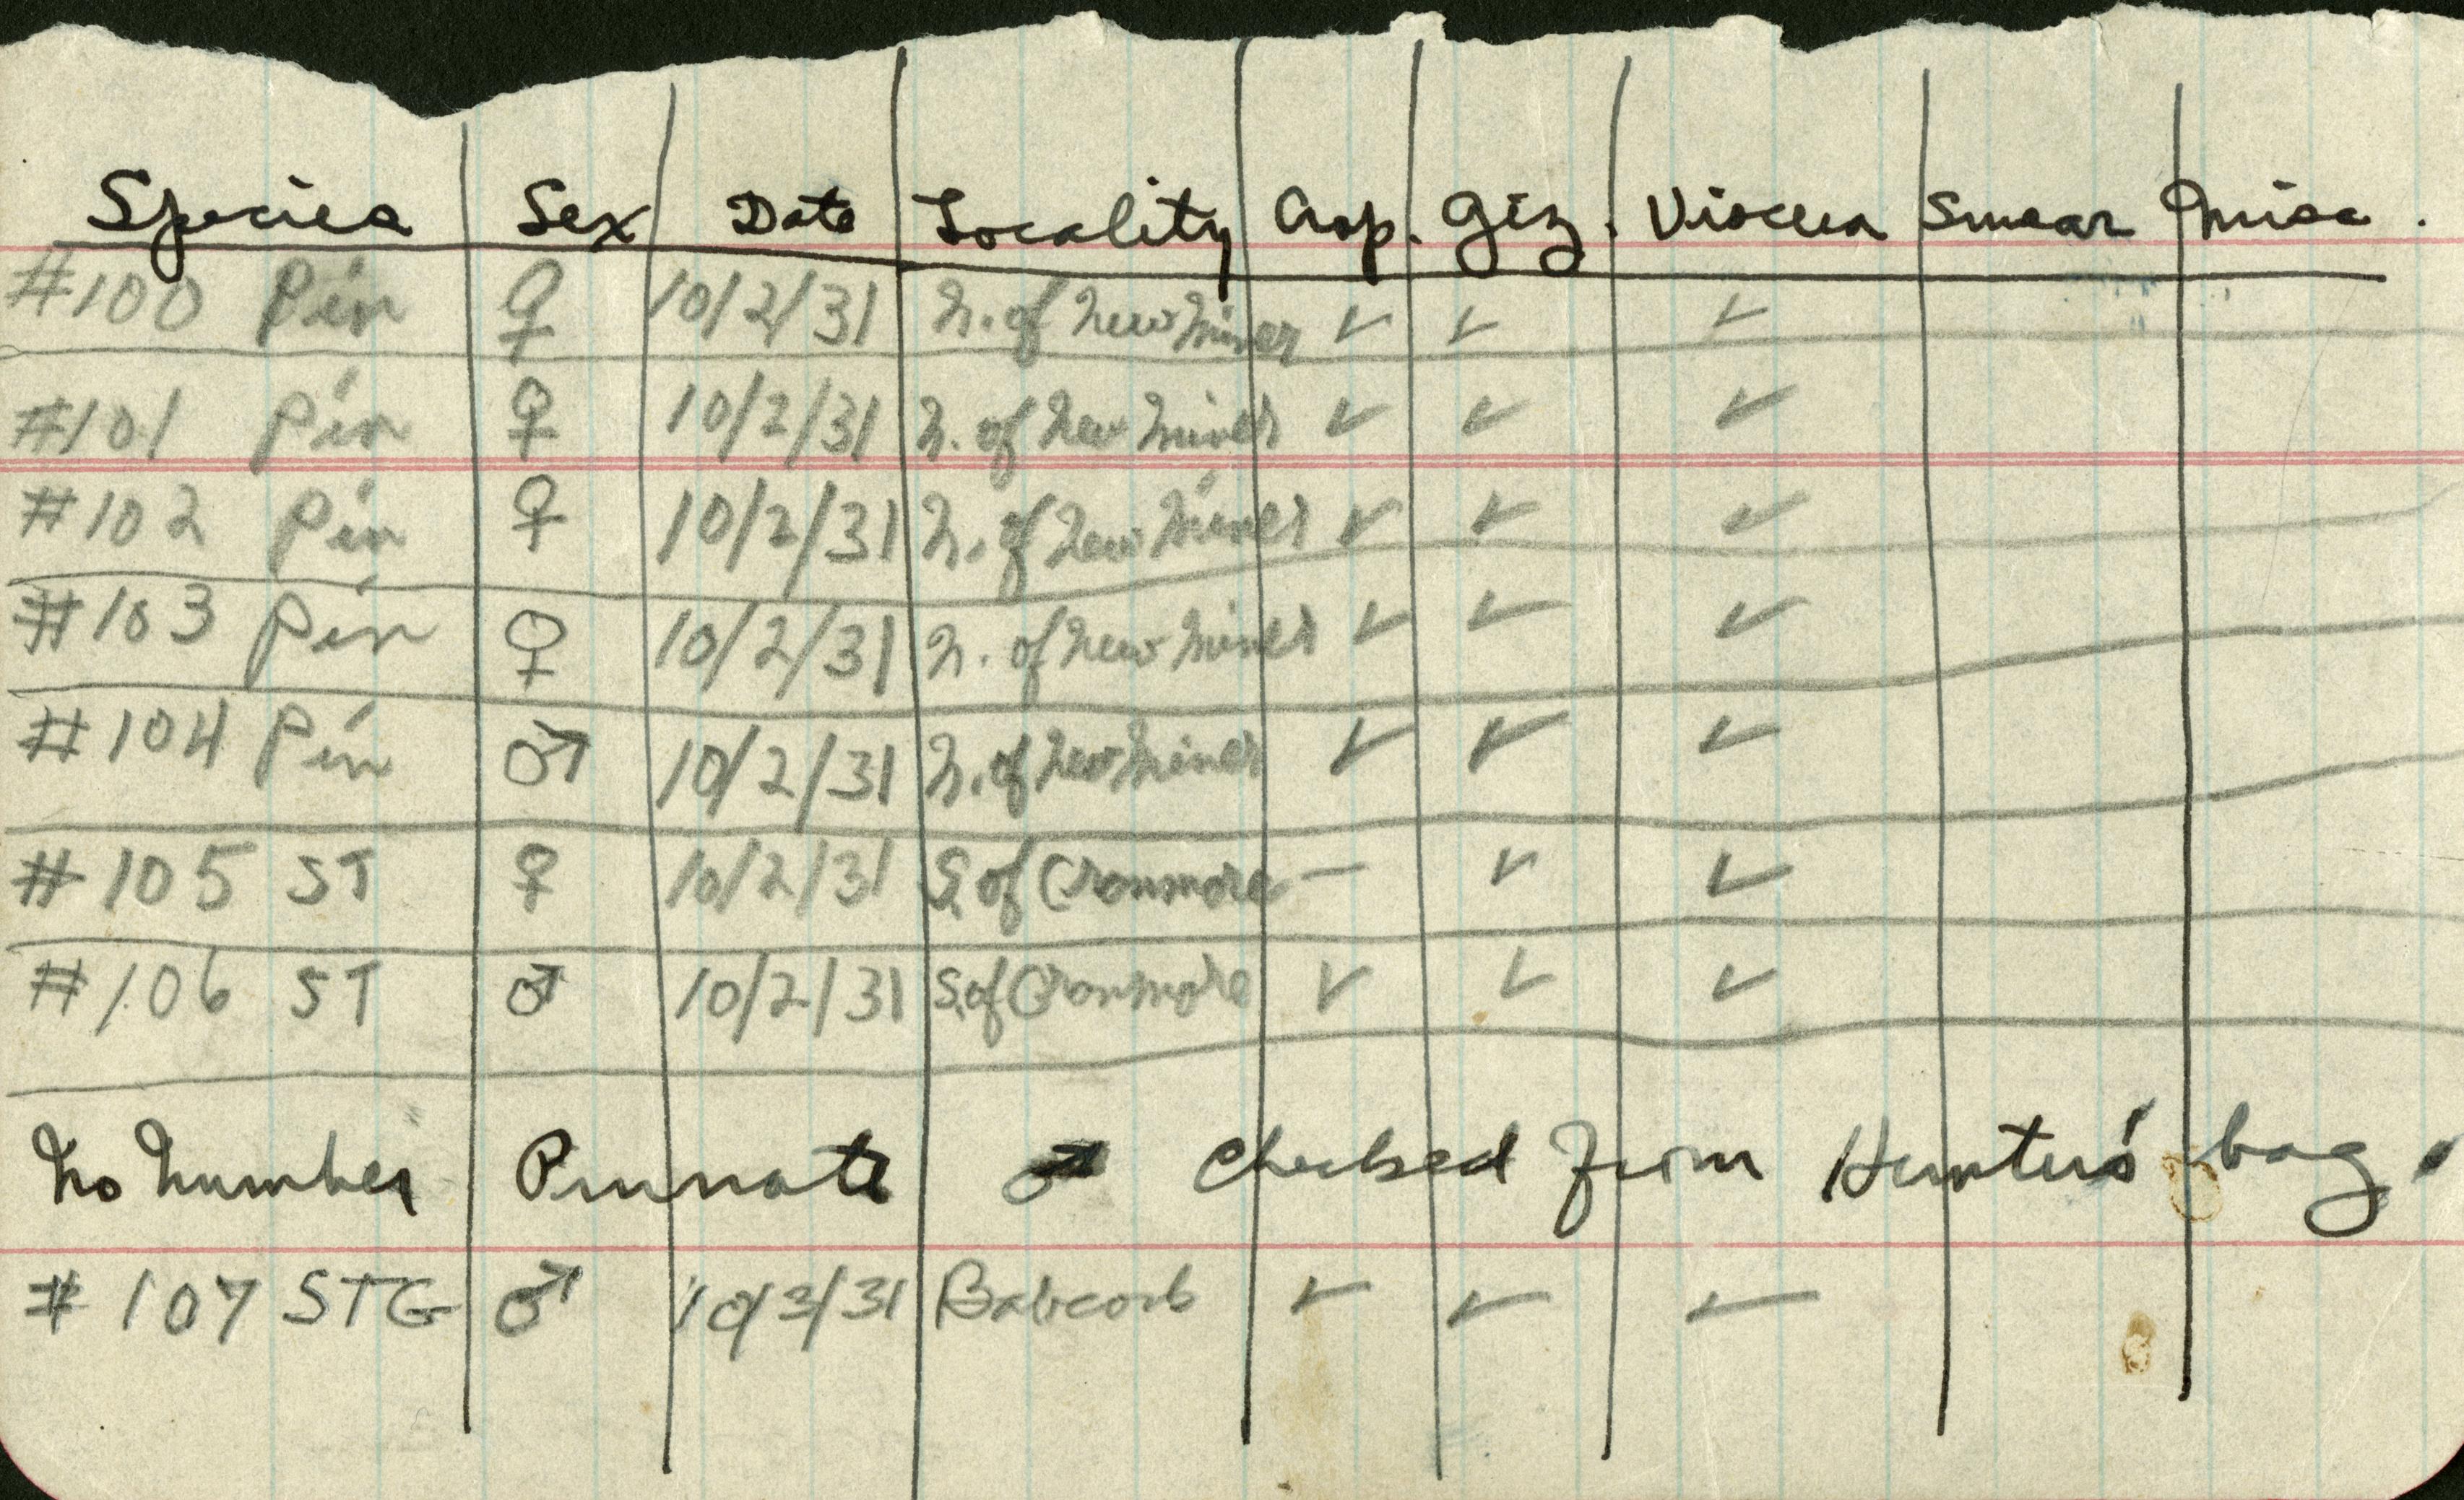 Species Sex Date Locality Crop. Giz. Viscera Smear Misc.
#100 Pin ♀ 10/2/31 N. of New Miner ✓ ✓ ✓
#101 Pin ♀ 10/2/31 N. of New Miner ✓ ✓ ✓
#102 Pin ♀ 10/2/31 N. of New Miner ✓ ✓ ✓
#103 Pin ♀ 10/2/31 N. of New Miner ✓ ✓ ✓
#104 Pin ♂ 10/2/31 N. of New Miner ✓ ✓ ✓
#105 ST ♀ 10/2/31 S. of Cranmore – ✓ ✓
#106 ST ♂ 10/2/31 S. of Cranmore ✓ ✓ ✓
No Number Pinnate ♂ Checked from Hunter's bag.
#107 STG ♂ 10/3/31 Babcock ✓ ✓ ✓